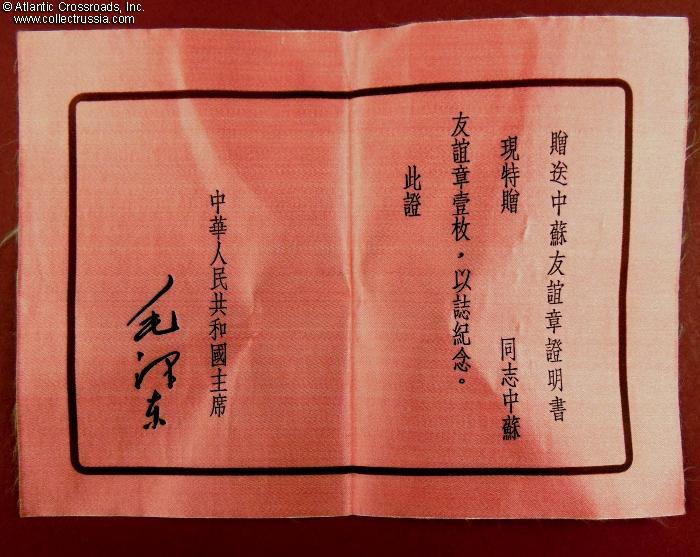 © Atlantic Crossroads, Inc.
www.collectrussia.com
贈送中蘇友誼章證明書
現特贈　　　同志中蘇
友誼章壹枚，以誌紀念。
此證
中華人民共和國主席
毛澤东